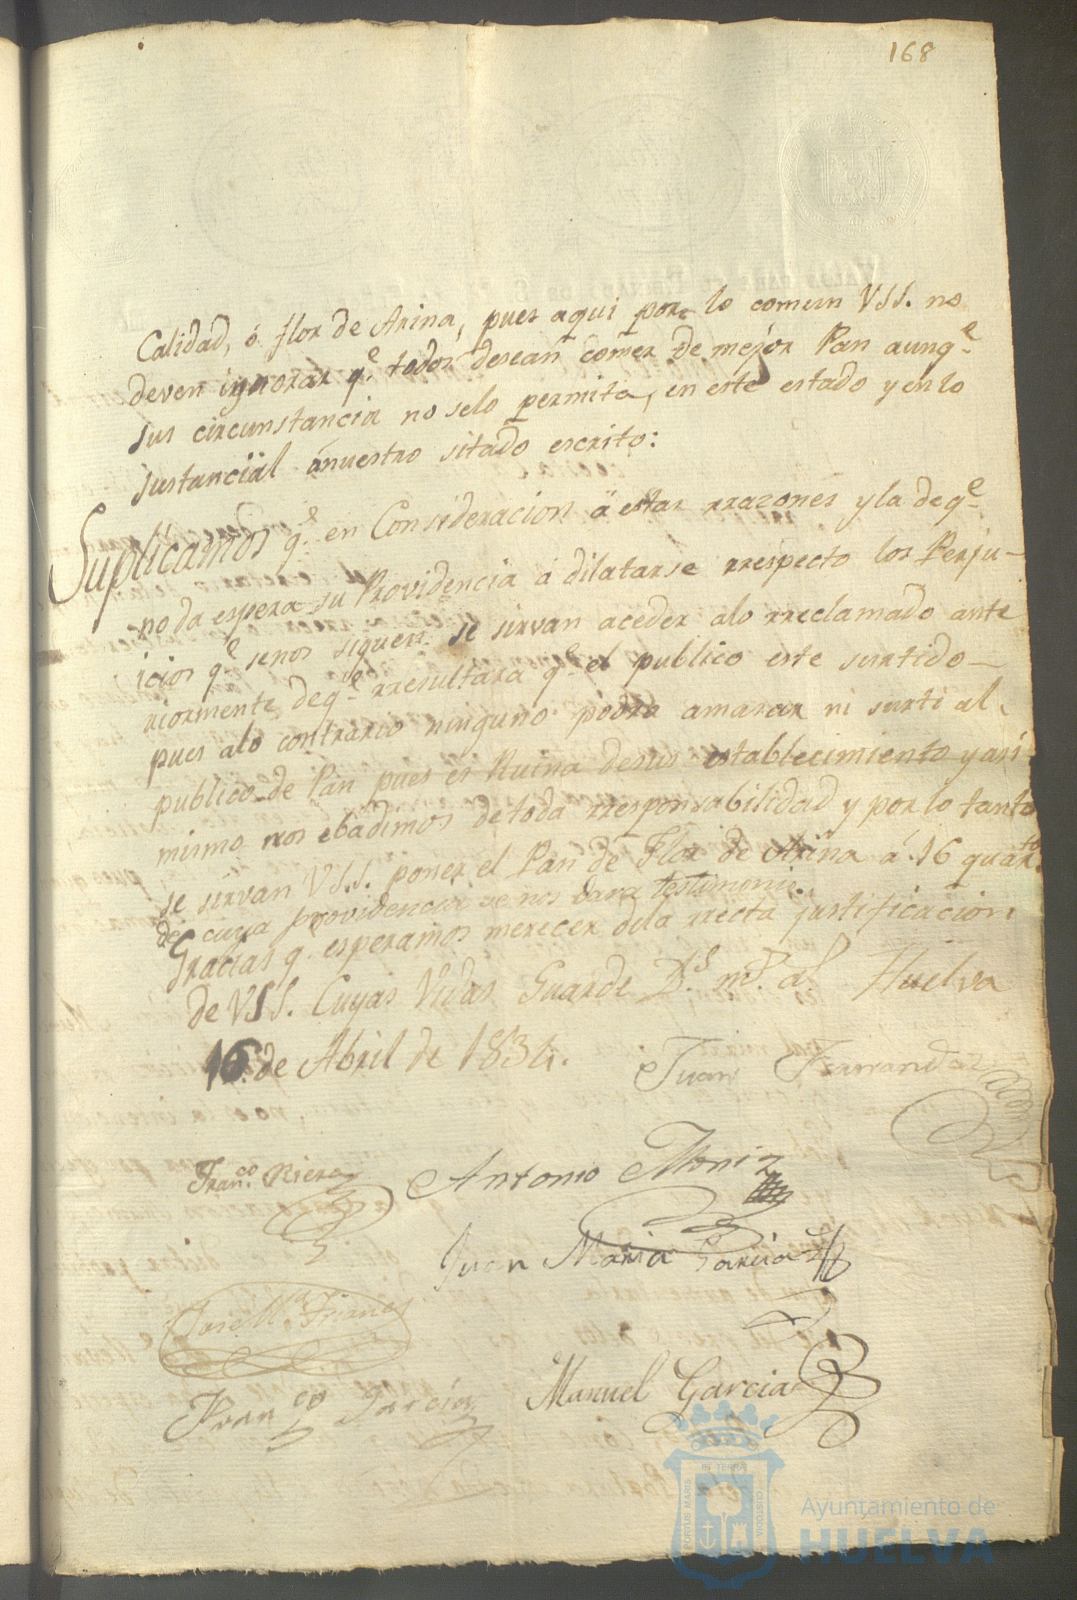 168
Calidad, ó flor de Arina, pues aqui por lo comun VSS. no
deven ignorar q.e todos desean comer de mejor Pan aunq.e
sus circunstancia no selo permita, en este estado y en lo
sustancïal ánuestro sitado escrito:
Suplicamos q.e en Consideracion á estas rrazones y la deq.e
no da espera su Providencia á dilatarse rrespecto los Perju-
icios q.e senos siguen se sirvan aceder alo rreclamado ante
riormente deq.e rresultara q.e el publico este surtido
pues alo contrario ninguno podra amasar ni surti al
publico de Pan pues es Ruina desus establecimiento y asi
mismo nos ebadimos de toda rresponsabilidad y por lo tanto
se sirvan VSS. poner el Pan de Flor de Arina á 16 quartos
de cuya providencia se nos dara testimonio.
Gracias q. esperamos merecer dela rrecta justificacion
de VSS. Cuyas Vidas Guarde D.s m.s a.s Huelva
16 de Abril de 1834.
Juan Fernandez
Fran.co Riera
Antonio Moniz
Juan Maria Garcia
Jose M.a
Fran co Garcia
Manuel Garcia
PORTUS MARIS
ET TERRÆ
CUSTODIA
Ayuntamiento de
HUELVA